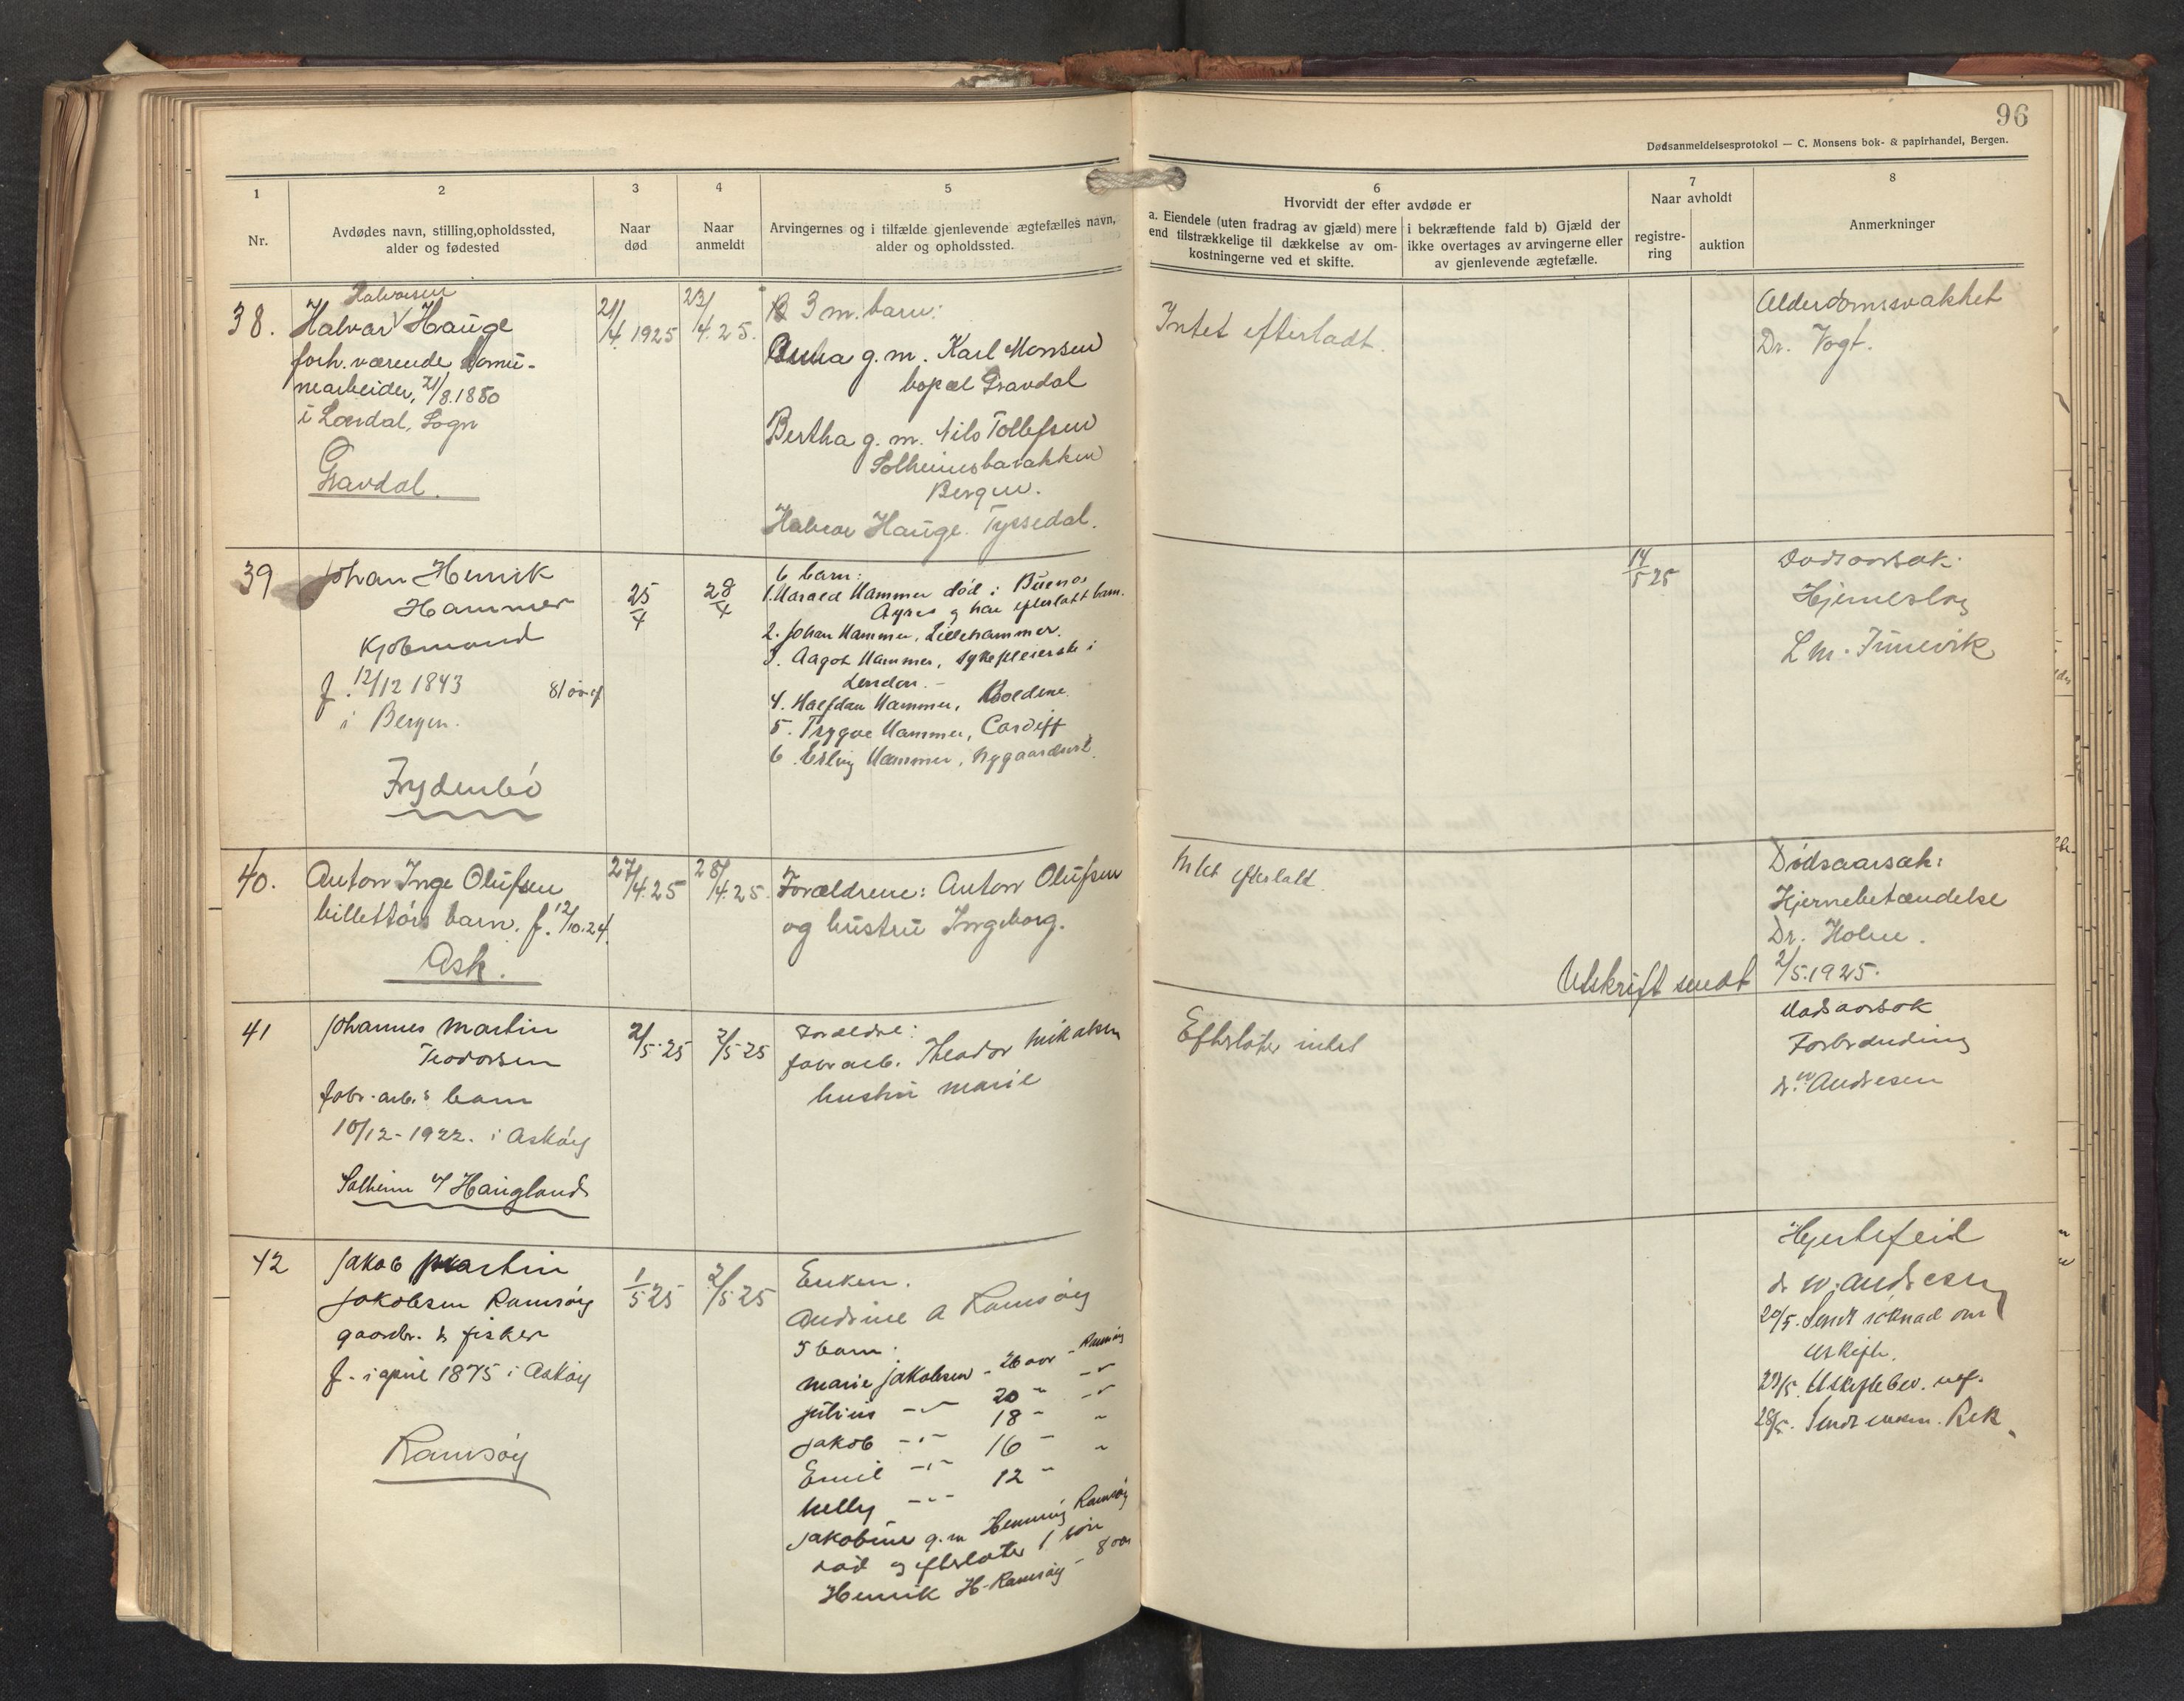 96
Dødsanmeldelsesprotokol — C. Monsens bok- & papirhandel, Bergen.
1
Nr.
2
Avdødes navn, stilling, opholdssted,
alder og fødested
3
Naar
død
4
Naar
anmeldt
5
Arvingernes og i tilfælde gjenlevende ægtefælles navn,
alder og opholdssted.
6
Hvorvidt der efter avdøde er
a. Eiendele (uten fradrag av gjæld) mere
end tilstrækkelige til dækkelse av om-
kostningerne ved et skifte.
i bekræftende fald b) Gjæld der
ikke overtages av arvingerne eller
av gjenlevende ægtefælle.
7
Naar avholdt
registre-
ring
auktion
8
Anmerkninger
38.
Halvorsen
Halvar Hauge
forh. værende komu-
nearbeider, 21/8.1850
i Lærdal, Sogn
Gravdal.
21/4 1925
23/4.25.
3 m. barn:
Anna g. m. Karl Monsen
bopæl Gravdal
Bertha g. m. Nils Tollefsen
Solheimsbarakken
Bergen.
Halvor Hauge. Tyssedal.
Intet efterladt.
Alderdomssvakhet
Dr. Vogt.
39
Johan Henrik
Hammer
Kjøbmand
f. 12/12 1843 81 år gl
i Bergen.
Frydenbø
25/4
28/4
6 barn:
1. Harald Hammer død i Buenos
Ayres og har efterlatt barn.
2. Johan Hammer, Lillehammer.
3. Aagot Hammer, sykepleierske i
London. –
4. Halfdan Hammer,
5. Trygve Hammer, Cardiff
6. Erling Hammer,
14/5 25
Dødsaarsak:
Hjerneslag
L m.
40.
Anton Inge Olufsen
billettørs barn. f. 12/10.24.
Ask.
27/4.25
28/4.25.
Forældrene: Anton Olufsen
og hustru Ingeborg.
Intet efterlatt.
Dødsaarsak:
Hjernebetændelse
Dr. Holm.
Utskrift sendt 2/5.1925.
41
Johannes Martin
Teodorsen
fabr. arb.s barn
10/12-1922. i Askøy
Solheim u/ Haugland
2/5-25
2/5-25
Forældre:
fabr arb. Theodor Mikalsen
hustru Marie
Efterlater intet
Dødsaarsak
Forbrænding
dr. W. Andresen
42
Jakob Martin
Jakobsen Ramsøy
gaardbr. & fisker
f. i april 1875 i Askøy
Ramsøy
1/5 25
2/5 25
Enken.
Andrine A Ramsøy
5 barn:
Marie Jakobsen - 26 aar - Ramsøy
Julius -"- 20 " -"-
Jakob -"- 18 - "
Emil -"- 16 - "
Nelly -"- 12 -
Jakobine g. m Henning Ramsøy
død og efterlater 1 søn
Henrik H. Ramsøy - 8 aar
Hjertefeil
dr W. Andresen
20/5. Sendt søknad om
uskifte.
23/5. Uskiftebev. utf.
28/5. Sendt enken. Rek.